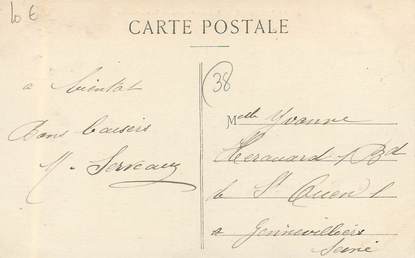 10 €
CARTE POSTALE
38
a bientot
Bons baisers
M. Serveaux
Melle Yvonne
Herouard Bd
de St Ouen 1
a Gennevilliers
Seine